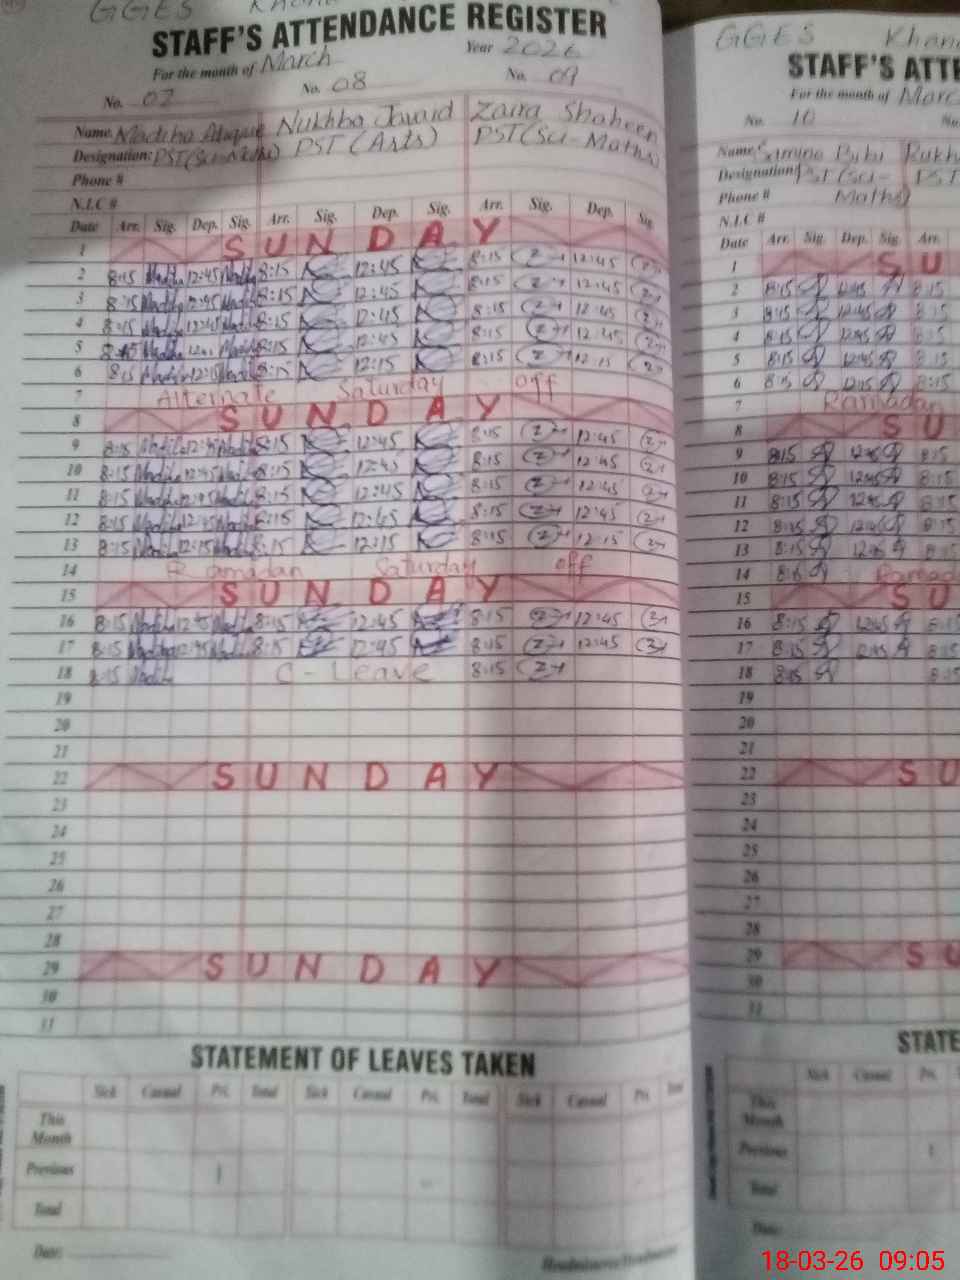 GGES
STAFF'S ATTENDANCE REGISTER
For the month of March Year 2026
No. 07 No. 08 No. 09
Name: Madiha Nukhba Javaid Zaira Shaheen
Designation: PST(Sci-Maths) PST (Arts) PST(Sci-Maths)
Phone #
N.I.C #
Date Arr. Sig. Dep. Sig. Arr. Sig. Dep. Sig. Arr. Sig. Dep. Sig.
1 SUNDAY
2 8:15 Madiha 12:45 Madiha 8:15 12:45 8:15 12:45
3 8:15 Madiha 12:45 Madiha 8:15 12:45 8:15 12:45
4 8:15 Madiha 12:45 Madiha 8:15 12:45 8:15 12:45
5 8:15 Madiha Madiha 8:15 12:45 8:15 12:45
6 8:15 Madiha 12:15 Madiha 8:15 12:15 8:15 12:15
7 Alternate Saturday off
8 SUNDAY
9 8:15 Madiha 12:45 Madiha 8:15 12:45 8:15 12:45
10 8:15 Madiha 12:45 Madiha 8:15 12:45 8:15 12:45
11 8:15 Madiha 12:45 Madiha 8:15 12:45 8:15 12:45
12 8:15 Madiha 12:45 Madiha 8:15 12:45 8:15 12:45
13 8:15 Madiha 12:15 Madiha 8:15 12:15 8:15 12:15
14 Ramadan Saturday off
15 SUNDAY
16 8:15 Madiha 12:45 Madiha 8:15 12:45 8:15 12:45
17 8:15 Madiha 12:45 Madiha 8:15 12:45 8:15 12:45
18 8:15 Madiha C-Leave 8:15
19
20
21
22 SUNDAY
23
24
25
26
27
28
29 SUNDAY
30
31
STATEMENT OF LEAVES TAKEN
Sick Casual Pri. Total Sick Casual Pri. Total Sick Casual Pri. Total
This Month
Previous 1
Total
Date:
GGES
STAFF'S ATTE
For the month of Marc
No. 10 No.
Name:
Designation: PST(Sci-Maths) PST
Phone #
N.I.C #
Date Arr. Sig. Dep. Sig. Arr.
1 SU
2 8:15 12:45 8:15
3 8:15 12:45 8:15
4 8:15 12:45 8:15
5 8:15 12:45 8:15
6 8:15 12:15 8:15
7 Ramadan
8 SU
9 8:15 12:45 8:15
10 8:15 12:45 8:15
11 8:15 12:45 8:15
12 8:15 12:45 8:15
13 8:15 8:15
14 Ramad
15 SU
16 8:15 12:45 8:15
17 8:15 12:45 8:15
18 8:15 8:15
19
20
21
22 SU
23
24
25
26
27
28
29 SU
30
31
STATE
Sick Casual Pri.
This Month
Previous 1
Total
Date:
18-03-26 09:05